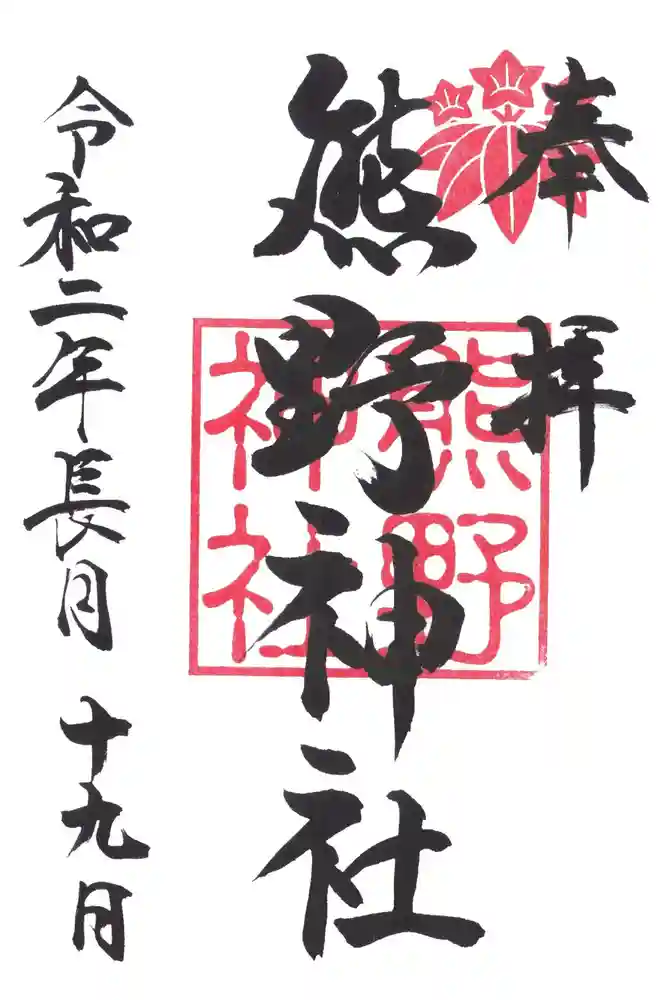 奉拝
熊野神社
熊野
神社
令和二年長月十九日